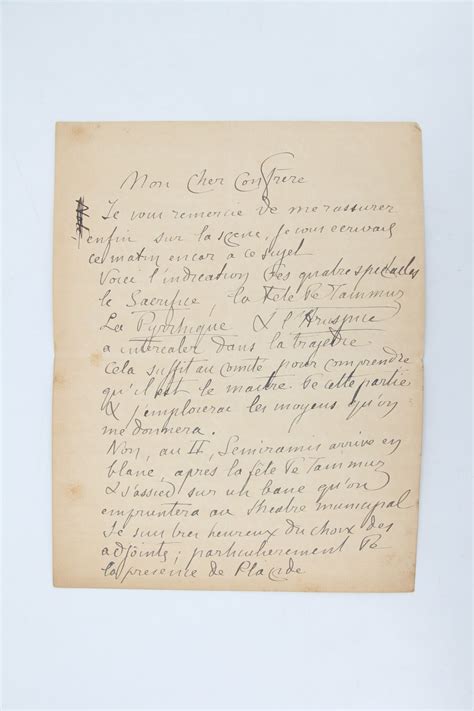 Mon cher Confrère
Je vous remercie de me rassurer
enfin sur la scène, je vous écrivais
ce matin encor à ce sujet
Voici l'indication des quatre spectacles
le Sacrifice, la fête de Tammuz
La Pyrrhique & l'Aruspice
à intercaler dans la tragédie
Cela suffit au comité pour comprendre
qu'il est le maître de cette partie
& j'emploierai les moyens qu'on
me donnera.
Non, au II, Semiramis arrive en
blanc, après la fête de Tammuz
& s'assied sur un banc qu'on
empruntera au théatre municipal
Je suis très heureux du choix des
adjoints; particulièrement de
la présence de Placide